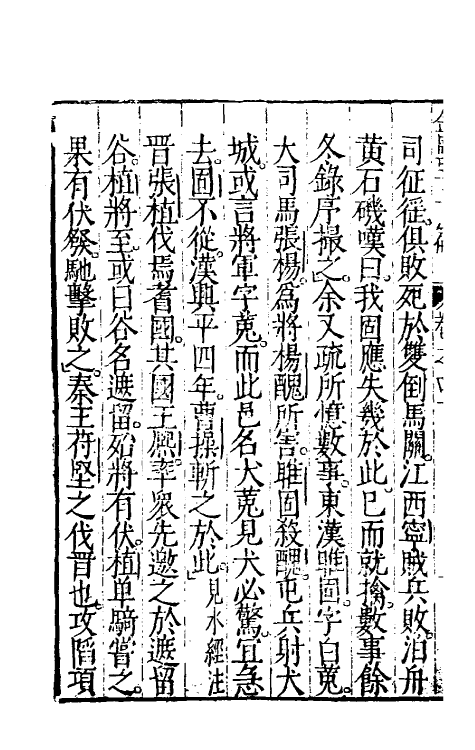 司征徭俱敗死於雙倒馬關江西寧賊兵敗泊舟
黃石磯嘆曰我固應失幾於此已而就擒數事餘
冬錄序撮之余又疏所憶數事東漢眭固字白菟
大司馬張楊為將楊醜所害眭固殺醜屯兵射犬
城或言將軍字菟而此邑名犬菟見犬必驚宜急
去固不從漢興平四年曹操斬之於此見水經注
晉張植伐焉耆國其國王熙率眾先邀之於遮留
谷植將至或曰谷名遮留殆將有伏植单騎嘗之
果有伏發馳擊敗之秦王苻堅之伐晋也攻陷項